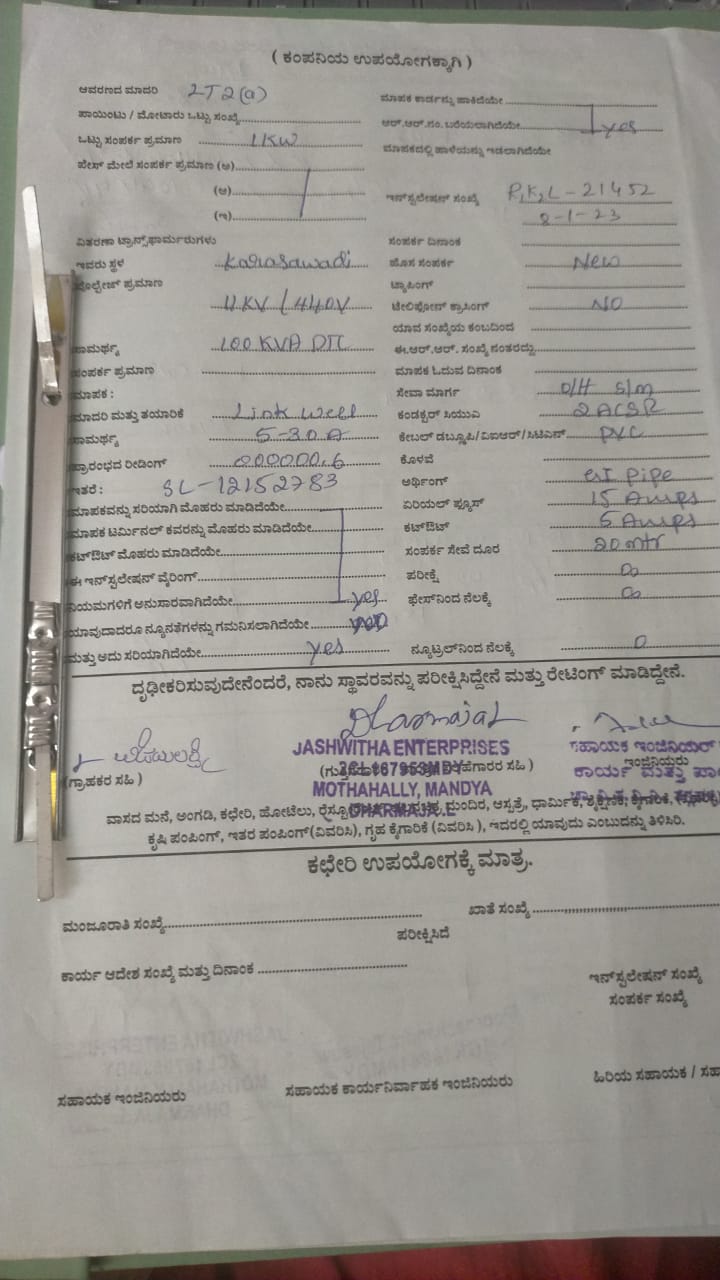 ( ಕಂಪನಿಯ ಉಪಯೋಗಕ್ಕಾಗಿ )
ಆವರಣದ ಮಾದರಿ 2T2(a)
ಮಾಪಕ ಕಾರ್ಡನ್ನು ಹಾಕಿದೆಯೇ
ಪಾಯಿಂಟು / ಮೋಟಾರು ಒಟ್ಟು ಸಂಖ್ಯೆ
ಆರ್.ಆರ್.ನಂ. ಬರೆಯಲಾಗಿದೆಯೇ yes
ಒಟ್ಟು ಸಂಪರ್ಕ ಪ್ರಮಾಣ 1KW
ಮಾಪಕದಲ್ಲಿ ಹಾಳೆಯನ್ನು ಇಡಲಾಗಿದೆಯೇ
ಪೇಸ್ ಮೇಲೆ ಸಂಪರ್ಕ ಪ್ರಮಾಣ (ಅ)
(ಆ)
ಇನ್‌ಸ್ಟಲೇಷನ್ ಸಂಖ್ಯೆ R,K,L-21452
(ಇ)
2-1-23
ವಿತರಣಾ ಟ್ರಾನ್ಸ್‌ಫಾರ್ಮರುಗಳು
ಸಂಪರ್ಕ ದಿನಾಂಕ
ಇವರು ಸ್ಥಳ Karasawadi
ಹೊಸ ಸಂಪರ್ಕ New
ವೋಲ್ಟೇಜ್ ಪ್ರಮಾಣ
ಟ್ಯಾಪಿಂಗ್
11KV / 440V
ಟೆಲಿಫೋನ್ ಕ್ರಾಸಿಂಗ್ NO
ಯಾವ ಸಂಖ್ಯೆಯ ಕಂಬದಿಂದ
ಸಾಮರ್ಥ್ಯ 100 KVA DTC
ಈ.ಆರ್.ಆರ್. ಸಂಖ್ಯೆ ನಂತರದ್ದು
ಸಂಪರ್ಕ ಪ್ರಮಾಣ
ಮಾಪಕ ಓದುವ ದಿನಾಂಕ
ಮಾಪಕ :
ಸೇವಾ ಮಾರ್ಗ O/H S/m
ಮಾದರಿ ಮತ್ತು ತಯಾರಿಕೆ Link Well
ಕಂಡಕ್ಟರ್ ಸಿಯುಎ 2ACSR
ಸಾಮರ್ಥ್ಯ 5-30A
ಕೇಬಲ್ ಡಬ್ಲ್ಯೂಪಿ/ವಿಐಆರ್/ಸಿಟಿಎಸ್ PVC
ಪ್ರಾರಂಭದ ರೀಡಿಂಗ್ 000000.6
ಕೊಳವೆ
ಇತರೆ : SL-12152783
ಅರ್ಥಿಂಗ್ GI Pipe
ಮಾಪಕವನ್ನು ಸರಿಯಾಗಿ ಮೊಹರು ಮಾಡಿದೆಯೇ
ಏರಿಯಲ್ ಫ್ಯೂಸ್ 15 Amps
ಮಾಪಕ ಟರ್ಮಿನಲ್ ಕವರನ್ನು ಮೊಹರು ಮಾಡಿದೆಯೇ
ಕಟ್‌ಔಟ್ 5 Amps
ಕಟ್‌ಔಟ್ ಮೊಹರು ಮಾಡಿದೆಯೇ
ಸಂಪರ್ಕ ಸೇವೆ ದೂರ 20 mtr
ಈ ಇನ್‌ಸ್ಟಲೇಷನ್ ವೈರಿಂಗ್
ಪರೀಕ್ಷೆ ∞
ನಿಯಮಗಳಿಗೆ ಅನುಸಾರವಾಗಿದೆಯೇ yes
ಫೇಸ್‌ನಿಂದ ನೆಲಕ್ಕೆ ∞
ಯಾವುದಾದರೂ ನ್ಯೂನತೆಗಳನ್ನು ಗಮನಿಸಲಾಗಿದೆಯೇ
ಮತ್ತು ಅದು ಸರಿಯಾಗಿದೆಯೇ yes
ನ್ಯೂಟ್ರಲ್‌ನಿಂದ ನೆಲಕ್ಕೆ 0
ದೃಢೀಕರಿಸುವುದೇನೆಂದರೆ, ನಾನು ಸ್ಥಾವರವನ್ನು ಪರೀಕ್ಷಿಸಿದ್ದೇನೆ ಮತ್ತು ರೇಟಿಂಗ್ ಮಾಡಿದ್ದೇನೆ.
JASHWITHA ENTERPRISES
ಸಹಾಯಕ ಇಂಜಿನಿಯರ್
(ಗ್ರಾಹಕರ ಸಹಿ )
2CL167953MDY
ಇಂಜಿನಿಯರು
ಕಾರ್ಯ ಮತ್ತು
MOTHAHALLY, MANDYA
DHARMAJA.E
ವಾಸದ ಮನೆ, ಅಂಗಡಿ, ಕಛೇರಿ, ಹೋಟೆಲು, ಮಂದಿರ, ಆಸ್ಪತ್ರೆ, ಧಾರ್ಮಿಕ, ಶೈಕ್ಷಣಿಕ, ಕೈಗಾರಿಕೆ,
ಕೃಷಿ ಪಂಪಿಂಗ್, ಇತರ ಪಂಪಿಂಗ್(ವಿವರಿಸಿ), ಗೃಹ ಕೈಗಾರಿಕೆ (ವಿವರಿಸಿ ), ಇದರಲ್ಲಿ ಯಾವುದು ಎಂಬುದನ್ನು ತಿಳಿಸಿರಿ.
ಕಛೇರಿ ಉಪಯೋಗಕ್ಕೆ ಮಾತ್ರ.
ಮಂಜೂರಾತಿ ಸಂಖ್ಯೆ
ಖಾತೆ ಸಂಖ್ಯೆ
ಪರೀಕ್ಷಿಸಿದೆ
ಕಾರ್ಯ ಆದೇಶ ಸಂಖ್ಯೆ ಮತ್ತು ದಿನಾಂಕ
ಇನ್‌ಸ್ಟಲೇಷನ್ ಸಂಖ್ಯೆ
ಸಂಪರ್ಕ ಸಂಖ್ಯೆ
ಸಹಾಯಕ ಇಂಜಿನಿಯರು
ಸಹಾಯಕ ಕಾರ್ಯನಿರ್ವಾಹಕ ಇಂಜಿನಿಯರು
ಹಿರಿಯ ಸಹಾಯಕ / ಸಹಾ